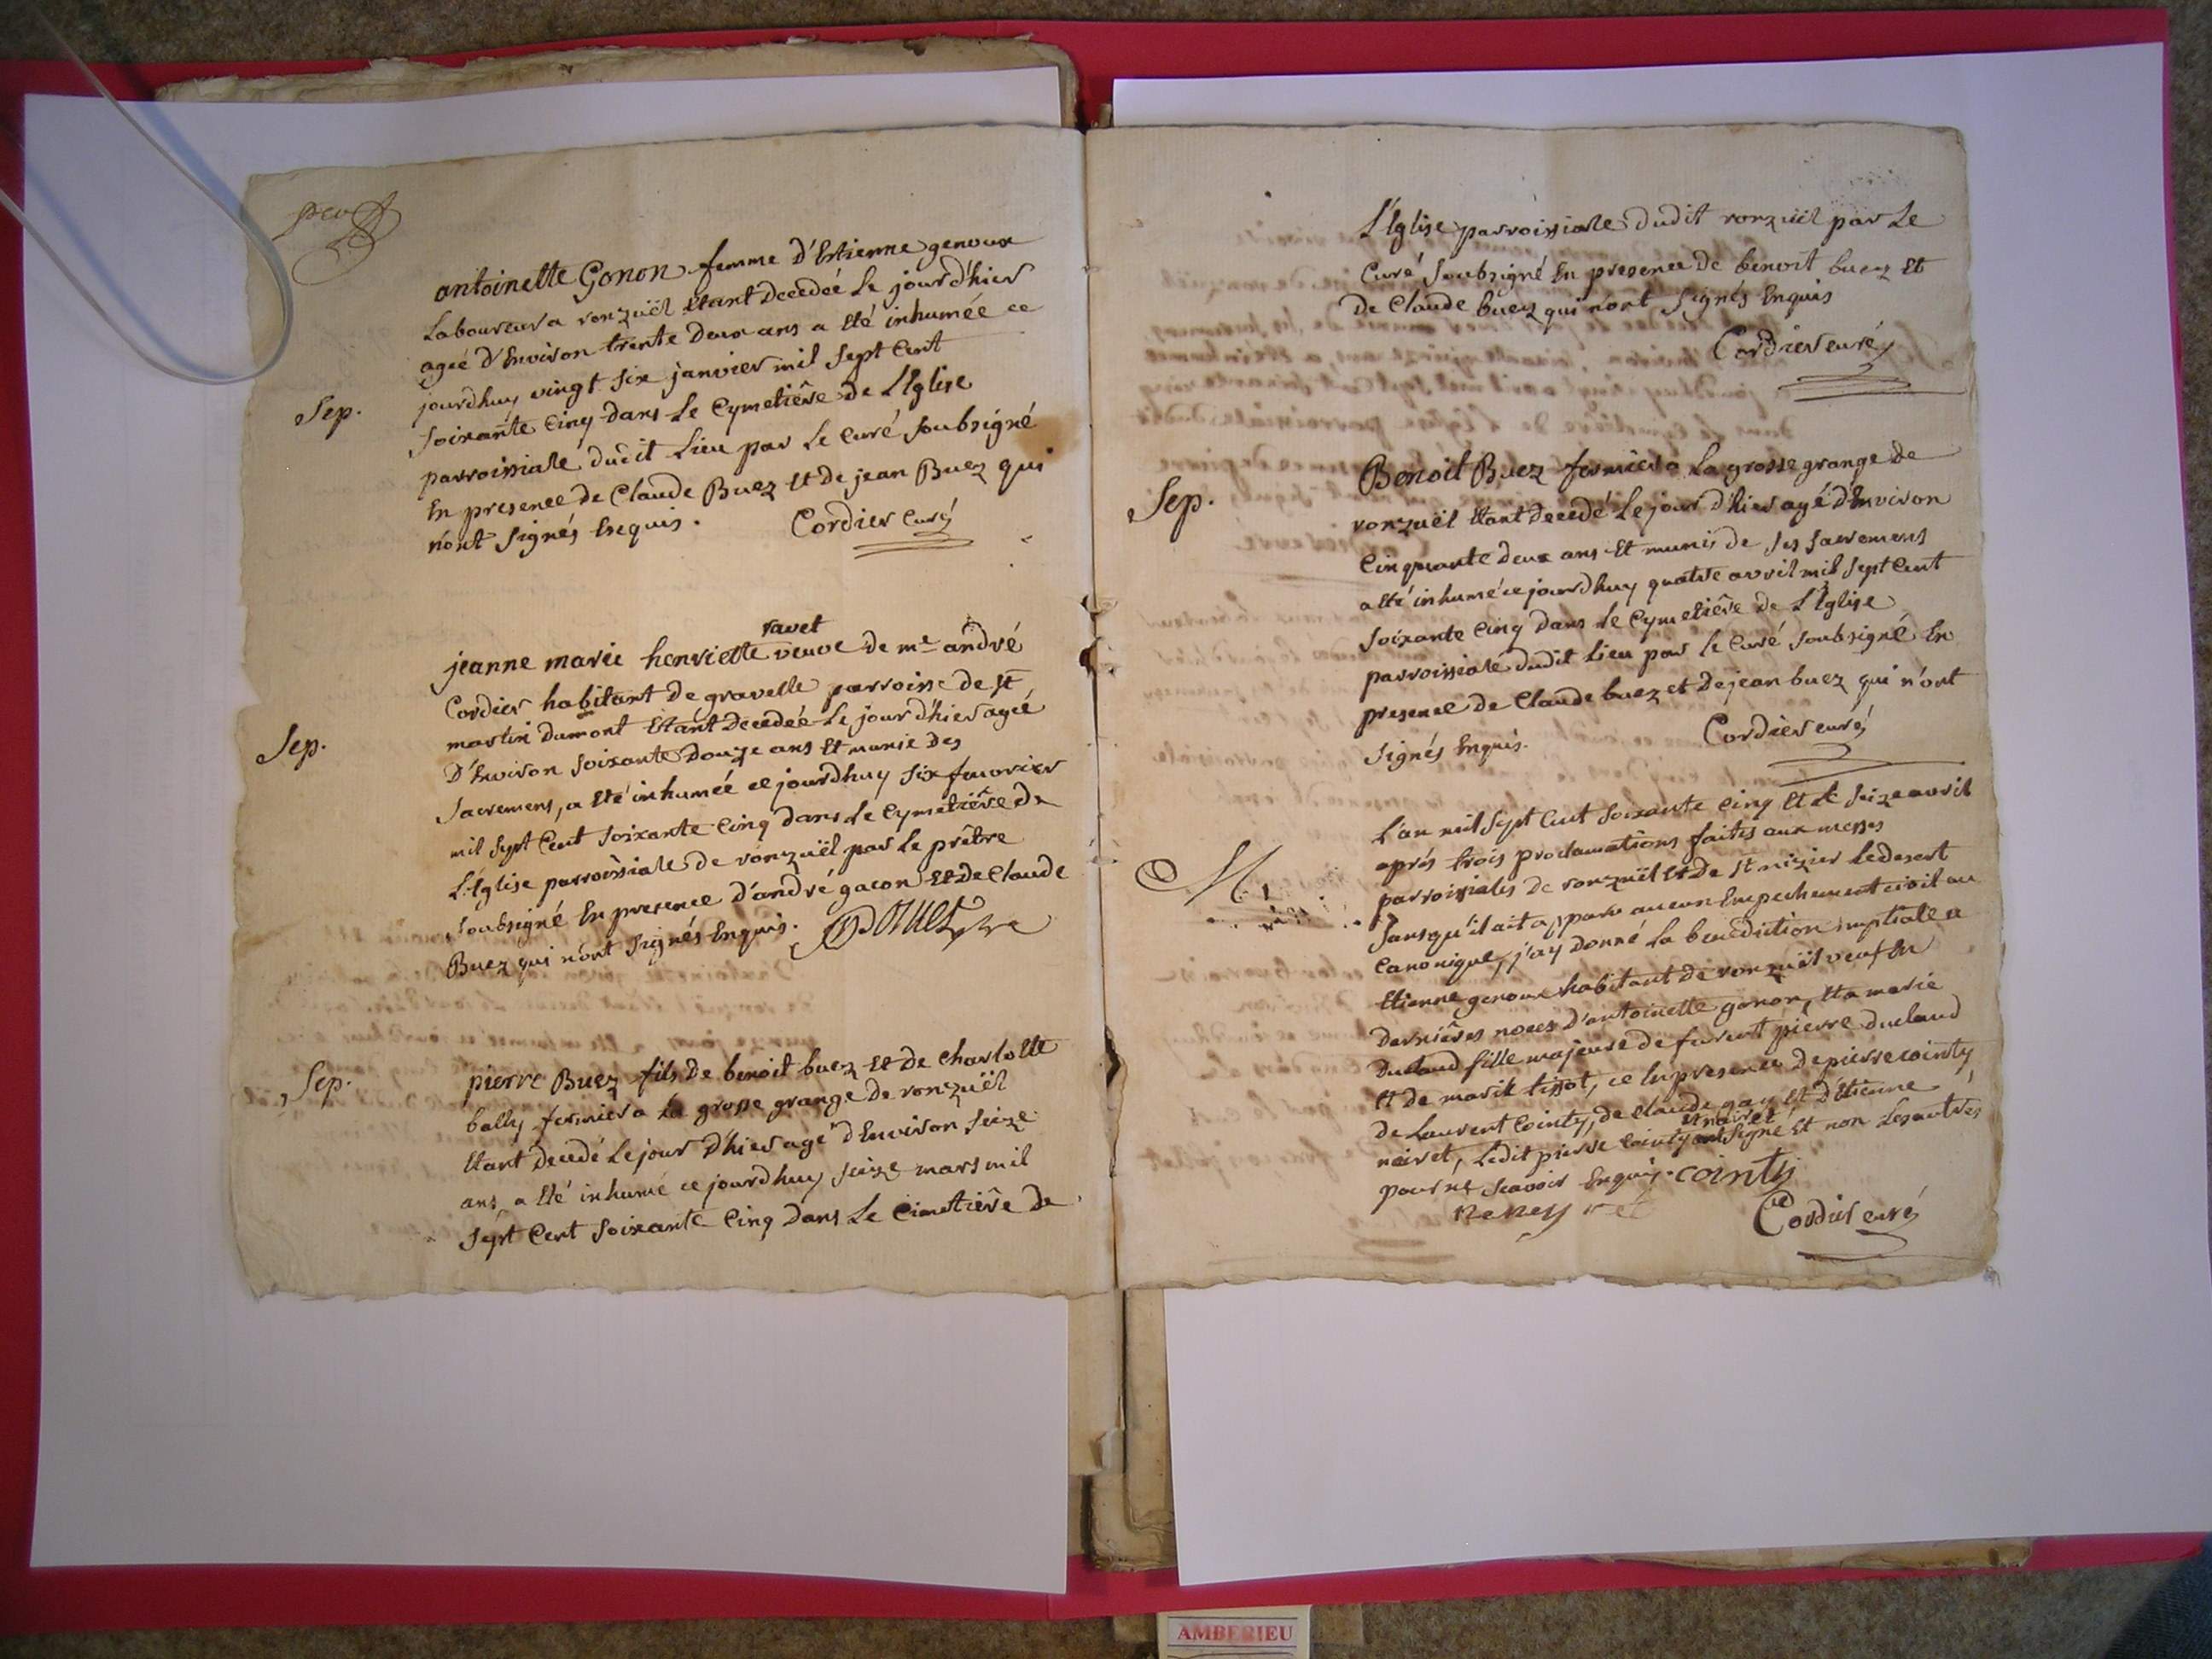 Sep.
antoinette Gonon femme d'Estienne genoux
Laboureur a ronzuël etant decedée le jour d'hier
ageé d'Environ trente deux ans a eté inhumée ce
jourdhuy vingt six janvier mil sept cent
soixante cinq dans le cymetiêre de L'Eglise
parroissiale dudit lieu par le curé soubsigné
En presence de Claude Buez et de jean Buez qui
n'ont signés Enquis.
Cordier curé
Sep.
ravet
jeanne marie henriette veuve de me andré
Cordier habitant de gravelle parroisse de st
martin dumont Etant decedeé le jour d'hier ageé
d'Environ soixante douze ans et munie des
sacremens, a eté inhumeé ce jourdhuy six fevrier
mil sept cent soixante cinq dans le cymetiêre de
L'Eglise parroissiale de ronzuël par le prêtre
soubsigné En presence d'andré gacon et de Claude
Buez qui n'ont signés Enquis.
Sep.
pierre Buez fils de benoit buez et de charlotte
bally fermier a la grosse grange de ronzuël
Etant decedé le jour d'hier agé d'Environ seize
ans, a eté inhumé ce jourdhuy seize mars mil
sept cent soixante cinq dans le cimetiêre de
L'Eglise parroissiale dudit ronzuël par le
curé soubsigné En presence de benoit buez et
de Claude buez qui n'ont signés Enquis
Cordier curé
Sep.
Benoit Buez fermier a la grosse grange de
ronzuël Etant decedé le jour d'hier agé d'Environ
cinquante deux ans et munis de ses sacremens
a eté inhumé ce jourdhuy quatre avril mil sept cent
soixante cinq dans le cymetiêre de L'Eglise
parroissiale dudit lieu par le curé soubsigné En
presence de Claude buez et de jean buez qui n'ont
signés Enquis.
Cordier curé
M.
L'an mil sept cent soixante cinq et le seize avril
aprés trois proclamations faites aux messes
parroissiales de ronzuël et de st nizier le desert
sans qu'il ait apparu aucun Empechement civil ou
canonique, j'ay donné la benediction nuptiale a
Etienne genoux habitant de ronzuël veuf En
dernières noces d'antoinette gonon, et a marie
duclaud fille majeure de furent pierre duclaud
et de marie tissot, ce En presence de pierre cointy
de Laurent Cointy, de claude gay et d'Etienne
et noiret
noiret, ledit pierre Cointy ont signé et non les autres
pour ne scavoir Enquis. cointy
Cordier curé
AMBERIEU